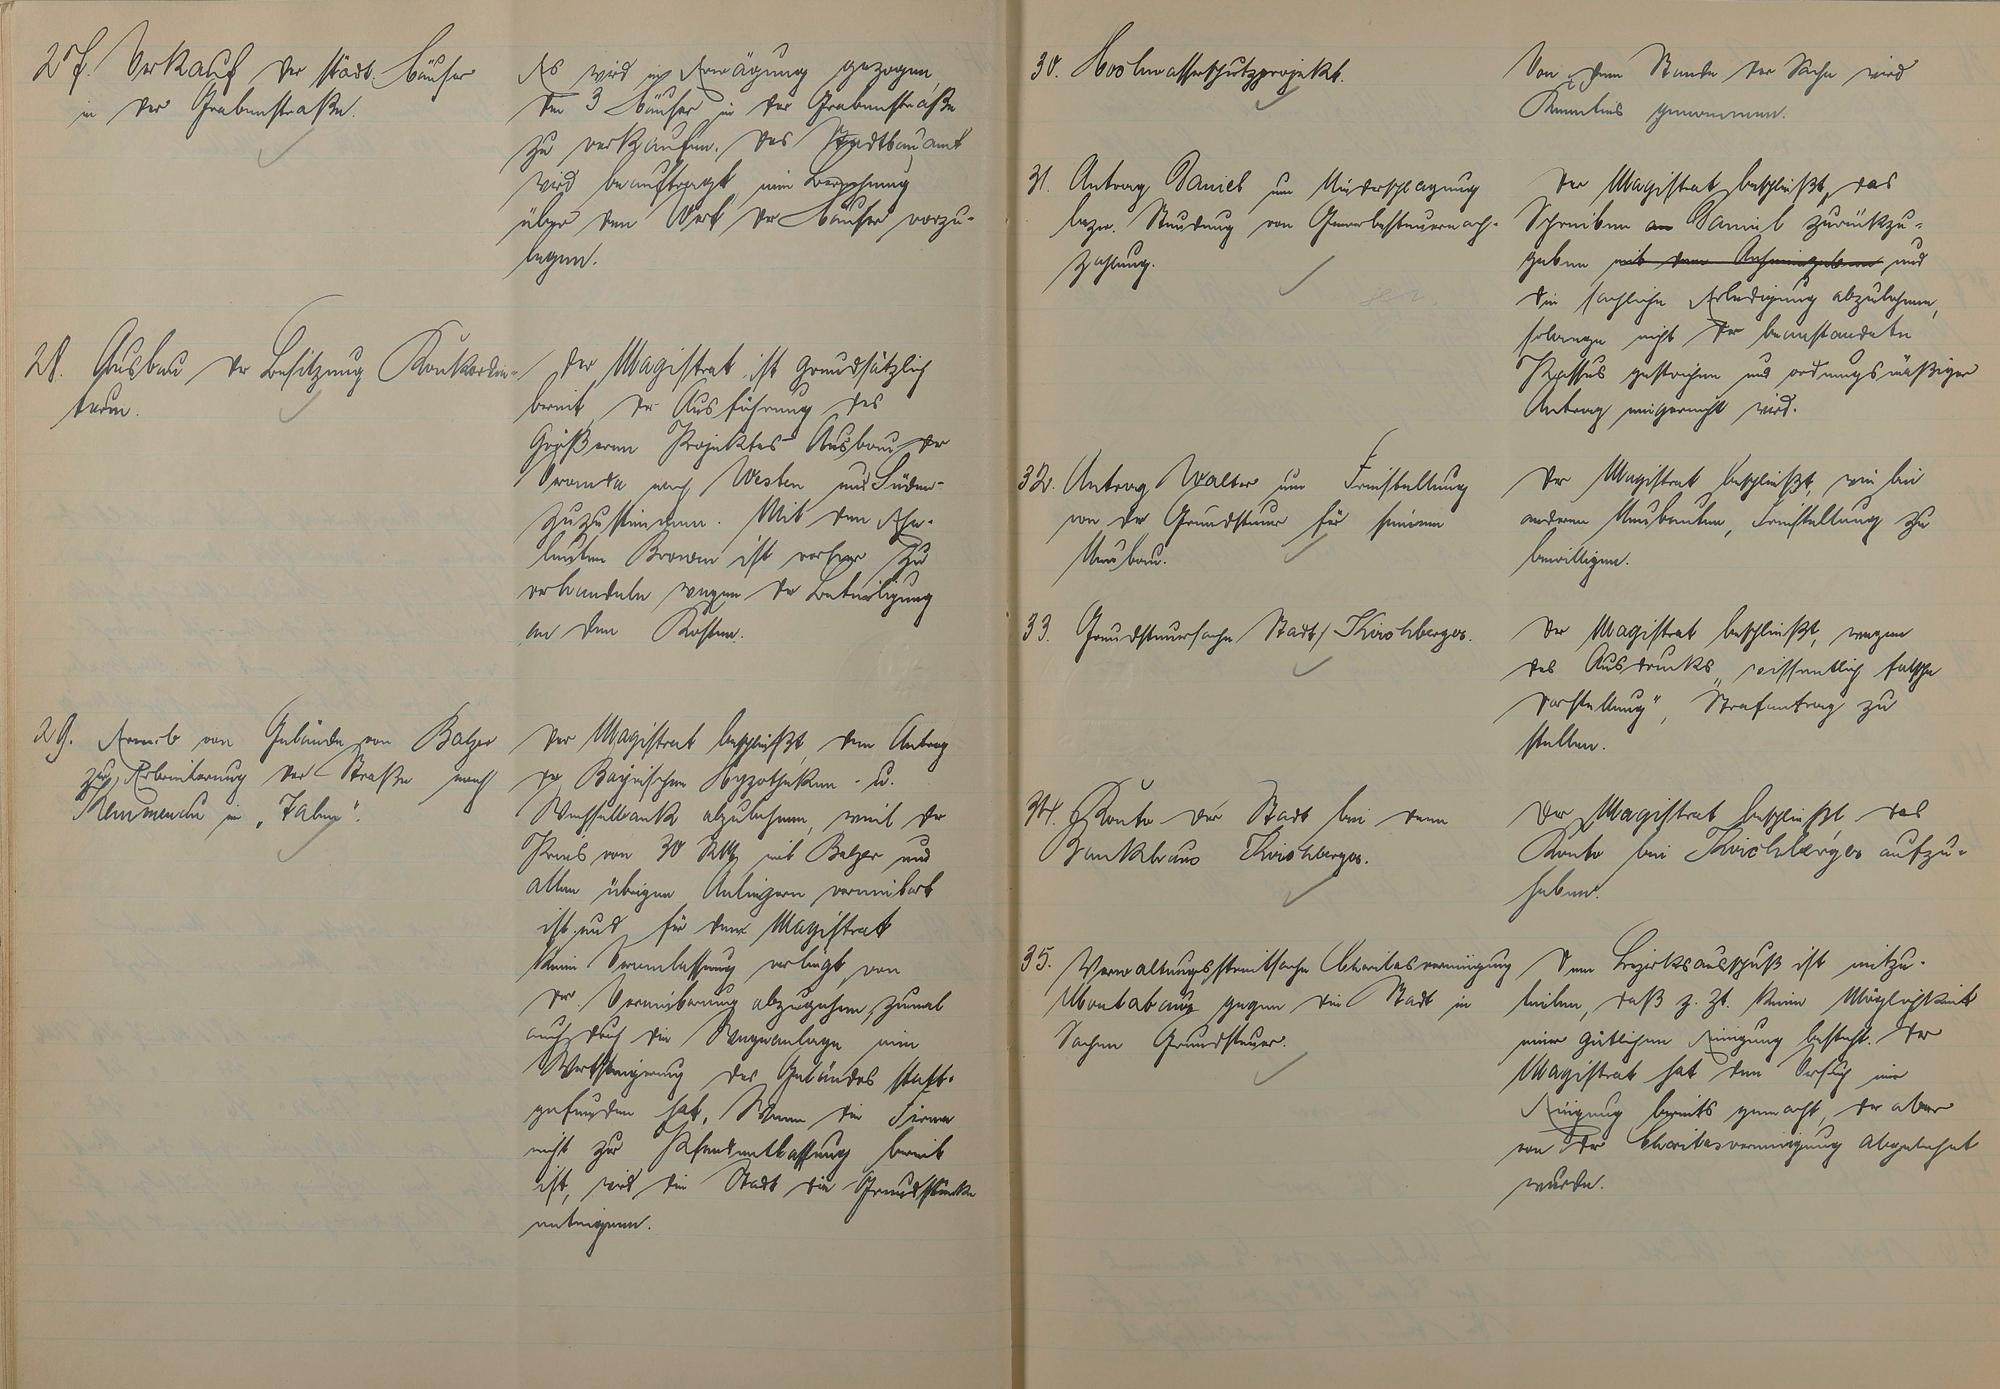 27. Verkauf der städt. Häuser
in der Grabenstraße.
Es wird in Erwägung gezogen,
die 3 Häuser in der Grabenstraße
zu verkaufen. Das Stadtbauamt
wird beauftragt eine Berechnung
über den Wert der Häuser vorzu-
legen.
28. Ausbau der Besitzung Konkordia-
turm.
Der Magistrat ist grundsätzlich
bereit, der Ausführung des
größeren Projektes Ausbau der
Veranda nach Westen und Süden
zuzustimmen. Mit den Ehe-
leuten ist vorher zu
verhandeln wegen der Beteiligung
an den Kosten.
29. Erwerb von Gelände von Balzer
zur Erbreiterung der Straße nach
Kemmenau in „Zaling".
Der Magistrat beschließt, den Antrag
der Bayrischen Hypotheken- u.
Wechselbank abzulehnen, weil der
Preis von 30 mit Balzer und
allen übrigen Anliegern vereinbart
ist und für den Magistrat
keine Veranlassung vorliegt, von
der Vereinbarung abzugehen, zumal
auch durch die Weganlage eine
Wertsteigerung des Geländes statt-
gefunden hat. Wenn die Firma
nicht zur Pfandentlassung bereit
ist, wird die Stadt die Grundstücke
enteignen.
30. Hochwasserschutzprojekt.
Von dem Stande der Sache wird
Kenntnis genommen.
31. Antrag Daniel um Niederschlagung
bezw. Stundung von Gewerbesteuernach-
zahlung.
Der Magistrat beschließt, das
Schreiben an Daniel zurückzu-
geben mit dem Anheimgeben und
die sachliche Erledigung abzulehnen,
solange nicht der beanstandete
Passus gestrichen und ordnungsmäßiger
Antrag eingereicht wird.
32. Antrag Walter um Freistellung
von der Grundsteuer für seinen
Neubau.
Der Magistrat beschließt, wie bei
anderen Neubauten, Freistellung zu
bewilligen.
33. Grundsteuersache Stadt/Kirchberger.
Der Magistrat beschließt, wegen
des Ausdrucks „wissentlich falsche
Darstellung", Strafantrag zu
stellen.
34. Konto der Stadt bei dem
Bankhaus Kirchberger.
Der Magistrat beschließt das
Konto bei Kirchberger aufzu-
heben.
35. Verwaltungsstreitsache Charitasvereinigung
Montabaur gegen die Stadt in
Sachen Grundsteuer.
Dem Bezirksausschuß ist mitzu-
teilen, daß z. Zt. keine Möglichkeit
einer gütlichen Einigung besteht. Der
Magistrat hat den Versuch einer
Einigung bereits gemacht, der aber
von der Charitasvereinigung abgelehnt
wurde.